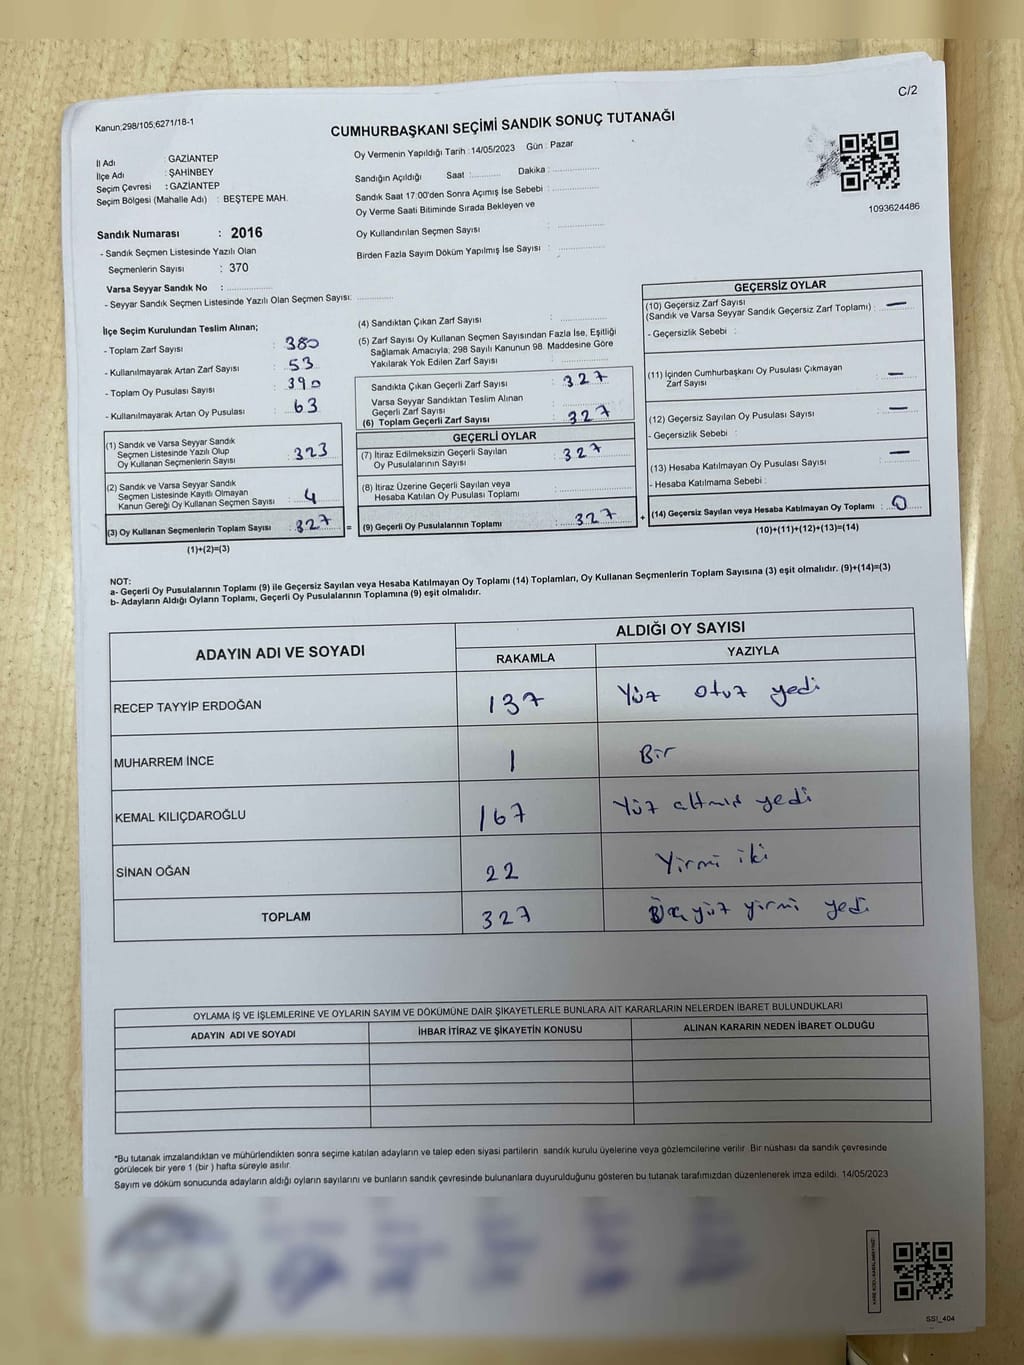 C/2
Kanun;298/105;6271/18-1
CUMHURBAŞKANI SEÇİMİ SANDIK SONUÇ TUTANAĞI
İl Adı : GAZİANTEP
İlçe Adı : ŞAHİNBEY
Seçim Çevresi : GAZİANTEP
Seçim Bölgesi (Mahalle Adı) : BEŞTEPE MAH.
Sandık Numarası : 2016
- Sandık Seçmen Listesinde Yazılı Olan
Seçmenlerin Sayısı : 370
Varsa Seyyar Sandık No :
- Seyyar Sandık Seçmen Listesinde Yazılı Olan Seçmen Sayısı:
Oy Vermenin Yapıldığı Tarih : 14/05/2023 Gün : Pazar
Sandığın Açıldığı Saat : Dakika :
Sandık Saat 17:00'den Sonra Açımış İse Sebebi :
Oy Verme Saati Bitiminde Sırada Bekleyen ve
Oy Kullandırılan Seçmen Sayısı :
Birden Fazla Sayım Döküm Yapılmış İse Sayısı :
1093624486
İlçe Seçim Kurulundan Teslim Alınan;
- Toplam Zarf Sayısı : 380
- Kullanılmayarak Artan Zarf Sayısı : 53
- Toplam Oy Pusulası Sayısı : 390
- Kullanılmayarak Artan Oy Pusulası : 63
(1) Sandık ve Varsa Seyyar Sandık
Seçmen Listesinde Yazılı Olup
Oy Kullanan Seçmenlerin Sayısı : 323
(2) Sandık ve Varsa Seyyar Sandık
Seçmen Listesinde Kayıtlı Olmayan
Kanun Gereği Oy Kullanan Seçmen Sayısı : 4
(3) Oy Kullanan Seçmenlerin Toplam Sayısı : 327 =
(1)+(2)=(3)
(4) Sandıktan Çıkan Zarf Sayısı :
(5) Zarf Sayısı Oy Kullanan Seçmen Sayısından Fazla İse, Eşitliği
Sağlamak Amacıyla, 298 Sayılı Kanunun 98. Maddesine Göre
Yakılarak Yok Edilen Zarf Sayısı :
Sandıkta Çıkan Geçerli Zarf Sayısı : 327
Varsa Seyyar Sandıktan Teslim Alınan
Geçerli Zarf Sayısı :
(6) Toplam Geçerli Zarf Sayısı : 327
GEÇERLİ OYLAR
(7) İtiraz Edilmeksizin Geçerli Sayılan
Oy Pusulalarının Sayısı : 327
(8) İtiraz Üzerine Geçerli Sayılan veya
Hesaba Katılan Oy Pusulası Toplamı :
(9) Geçerli Oy Pusulalarının Toplamı : 327 +
GEÇERSİZ OYLAR
(10) Geçersiz Zarf Sayısı
(Sandık ve Varsa Seyyar Sandık Geçersiz Zarf Toplamı) : —
- Geçersizlik Sebebi :
(11) İçinden Cumhurbaşkanı Oy Pusulası Çıkmayan
Zarf Sayısı : —
(12) Geçersiz Sayılan Oy Pusulası Sayısı : —
- Geçersizlik Sebebi :
(13) Hesaba Katılmayan Oy Pusulası Sayısı : —
- Hesaba Katılmama Sebebi :
(14) Geçersiz Sayılan veya Hesaba Katılmayan Oy Toplamı : 0
(10)+(11)+(12)+(13)=(14)
NOT:
a- Geçerli Oy Pusulalarının Toplamı (9) ile Geçersiz Sayılan veya Hesaba Katılmayan Oy Toplamı (14) Toplamları, Oy Kullanan Seçmenlerin Toplam Sayısına (3) eşit olmalıdır. (9)+(14)=(3)
b- Adayların Aldığı Oyların Toplamı, Geçerli Oy Pusulalarının Toplamına (9) eşit olmalıdır.
ADAYIN ADI VE SOYADI ALDIĞI OY SAYISI
RAKAMLA YAZIYLA
RECEP TAYYİP ERDOĞAN 137 Yüz otuz yedi
MUHARREM İNCE 1 Bir
KEMAL KILIÇDAROĞLU 167 Yüz altmış yedi
SİNAN OĞAN 22 Yirmi iki
TOPLAM 327 Üç yüz yirmi yedi
OYLAMA İŞ VE İŞLEMLERİNE VE OYLARIN SAYIM VE DÖKÜMÜNE DAİR ŞİKAYETLERLE BUNLARA AİT KARARLARIN NELERDEN İBARET BULUNDUKLARI
ADAYIN ADI VE SOYADI İHBAR İTİRAZ VE ŞİKAYETİN KONUSU ALINAN KARARIN NEDEN İBARET OLDUĞU
*Bu tutanak imzalandıktan ve mühürlendikten sonra seçime katılan adayların ve talep eden siyasi partilerin sandık kurulu üyelerine veya gözlemcilerine verilir. Bir nüshası da sandık çevresinde
görülecek bir yere 1 (bir ) hafta süreyle asılır.
Sayım ve döküm sonucunda adayların aldığı oyların sayılarını ve bunların sandık çevresinde bulunanlara duyurulduğunu gösteren bu tutanak tarafımızdan düzenlenerek imza edildi. 14/05/2023
SSİ_404